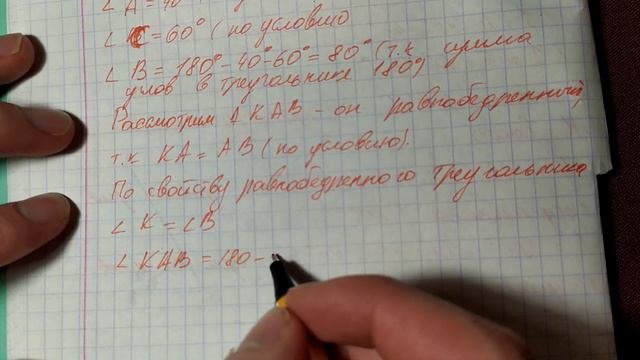 ∠ A = 40°
∠ C = 60° (по условию
∠ B = 180° - 40° - 60° = 80° (т.к сумма
углов в треугольнике 180°)
Рассмотрим Δ KAB - он равнобедренный,
т.к KA = AB (по условию).
По свойству равнобедренного треугольника
∠ K = ∠B
∠ KAB = 180 -